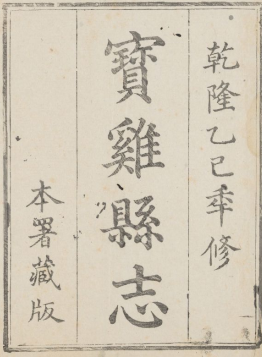 乾隆乙巳秊修
寳雞縣志
本署藏版